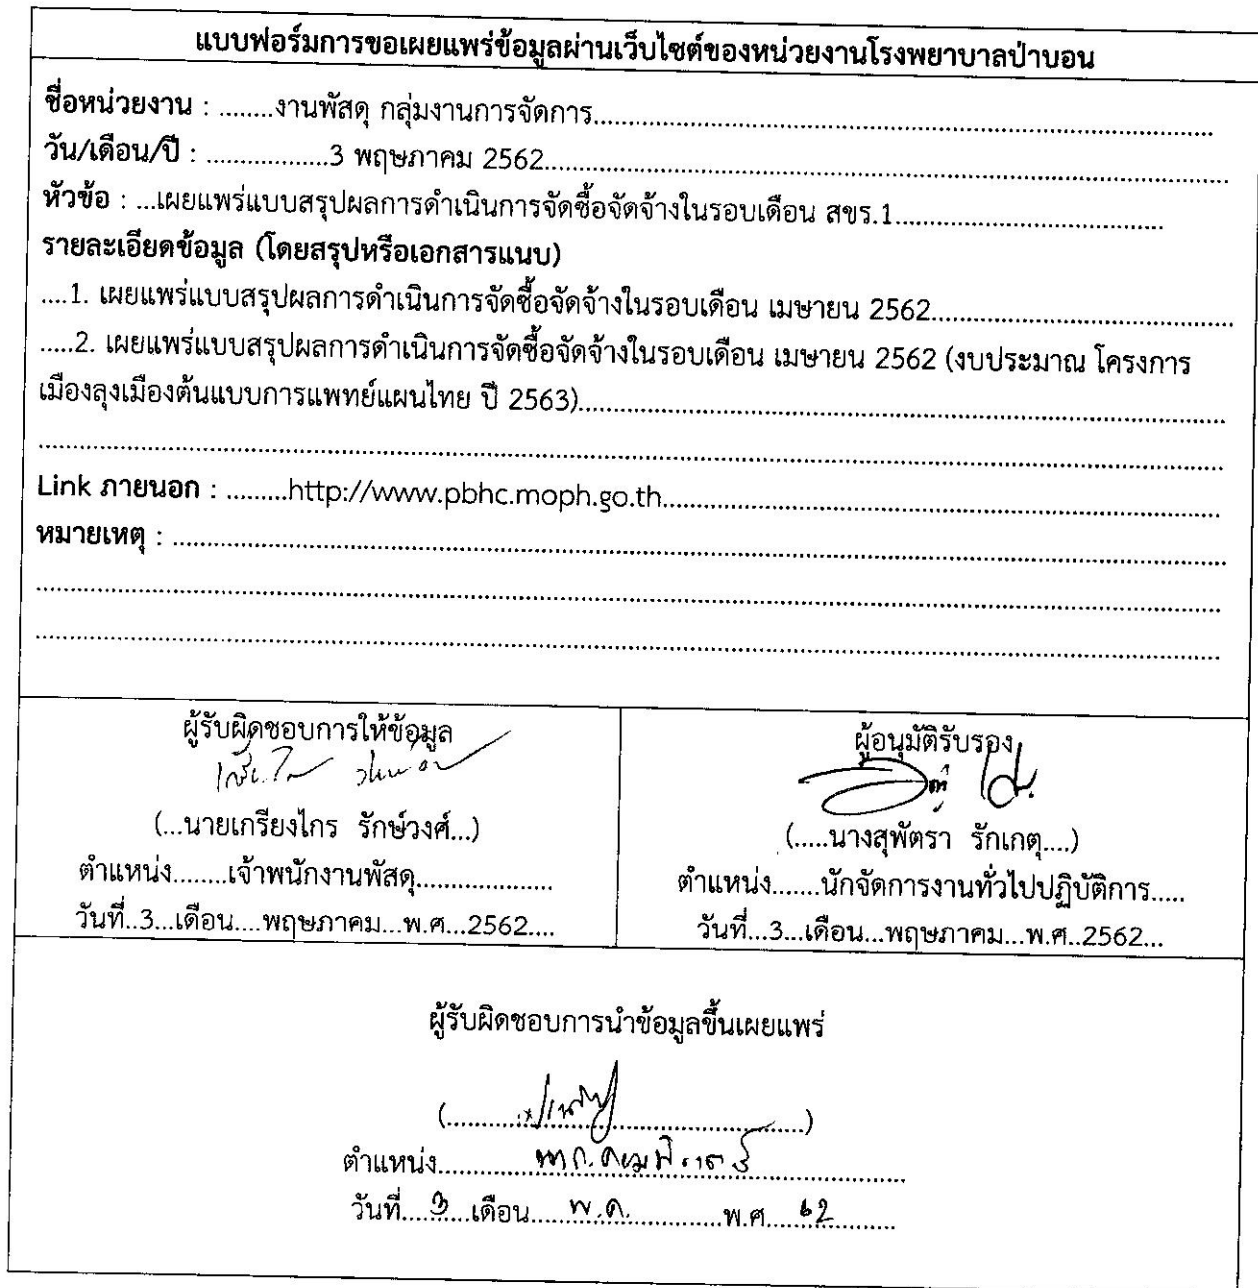 แบบฟอร์มการขอเผยแพร่ข้อมูลผ่านเว็บไซต์ของหน่วยงานโรงพยาบาลป่าบอน
ชื่อหน่วยงาน : ........งานพัสดุ กลุ่มงานการจัดการ........
วัน/เดือน/ปี : ........3 พฤษภาคม 2562........
หัวข้อ : ...เผยแพร่แบบสรุปผลการดำเนินการจัดซื้อจัดจ้างในรอบเดือน สขร.1........
รายละเอียดข้อมูล (โดยสรุปหรือเอกสารแนบ)
....1. เผยแพร่แบบสรุปผลการดำเนินการจัดซื้อจัดจ้างในรอบเดือน เมษายน 2562........
.....2. เผยแพร่แบบสรุปผลการดำเนินการจัดซื้อจัดจ้างในรอบเดือน เมษายน 2562 (งบประมาณ โครงการ
เมืองลุงเมืองต้นแบบการแพทย์แผนไทย ปี 2563)........
Link ภายนอก : .........http://www.pbhc.moph.go.th........
หมายเหตุ : ........
ผู้รับผิดชอบการให้ข้อมูล
(...นายเกรียงไกร รักษ์วงศ์...)
ตำแหน่ง........เจ้าพนักงานพัสดุ........
วันที่..3...เดือน....พฤษภาคม...พ.ศ...2562....
ผู้อนุมัติรับรอง
(.....นางสุพัตรา รักเกตุ....)
ตำแหน่ง.......นักจัดการงานทั่วไปปฏิบัติการ.....
วันที่...3...เดือน...พฤษภาคม...พ.ศ..2562...
ผู้รับผิดชอบการนำข้อมูลขึ้นเผยแพร่
(................)
ตำแหน่ง........
วันที่....3....เดือน.....พ.ค.......พ.ศ.....62.......